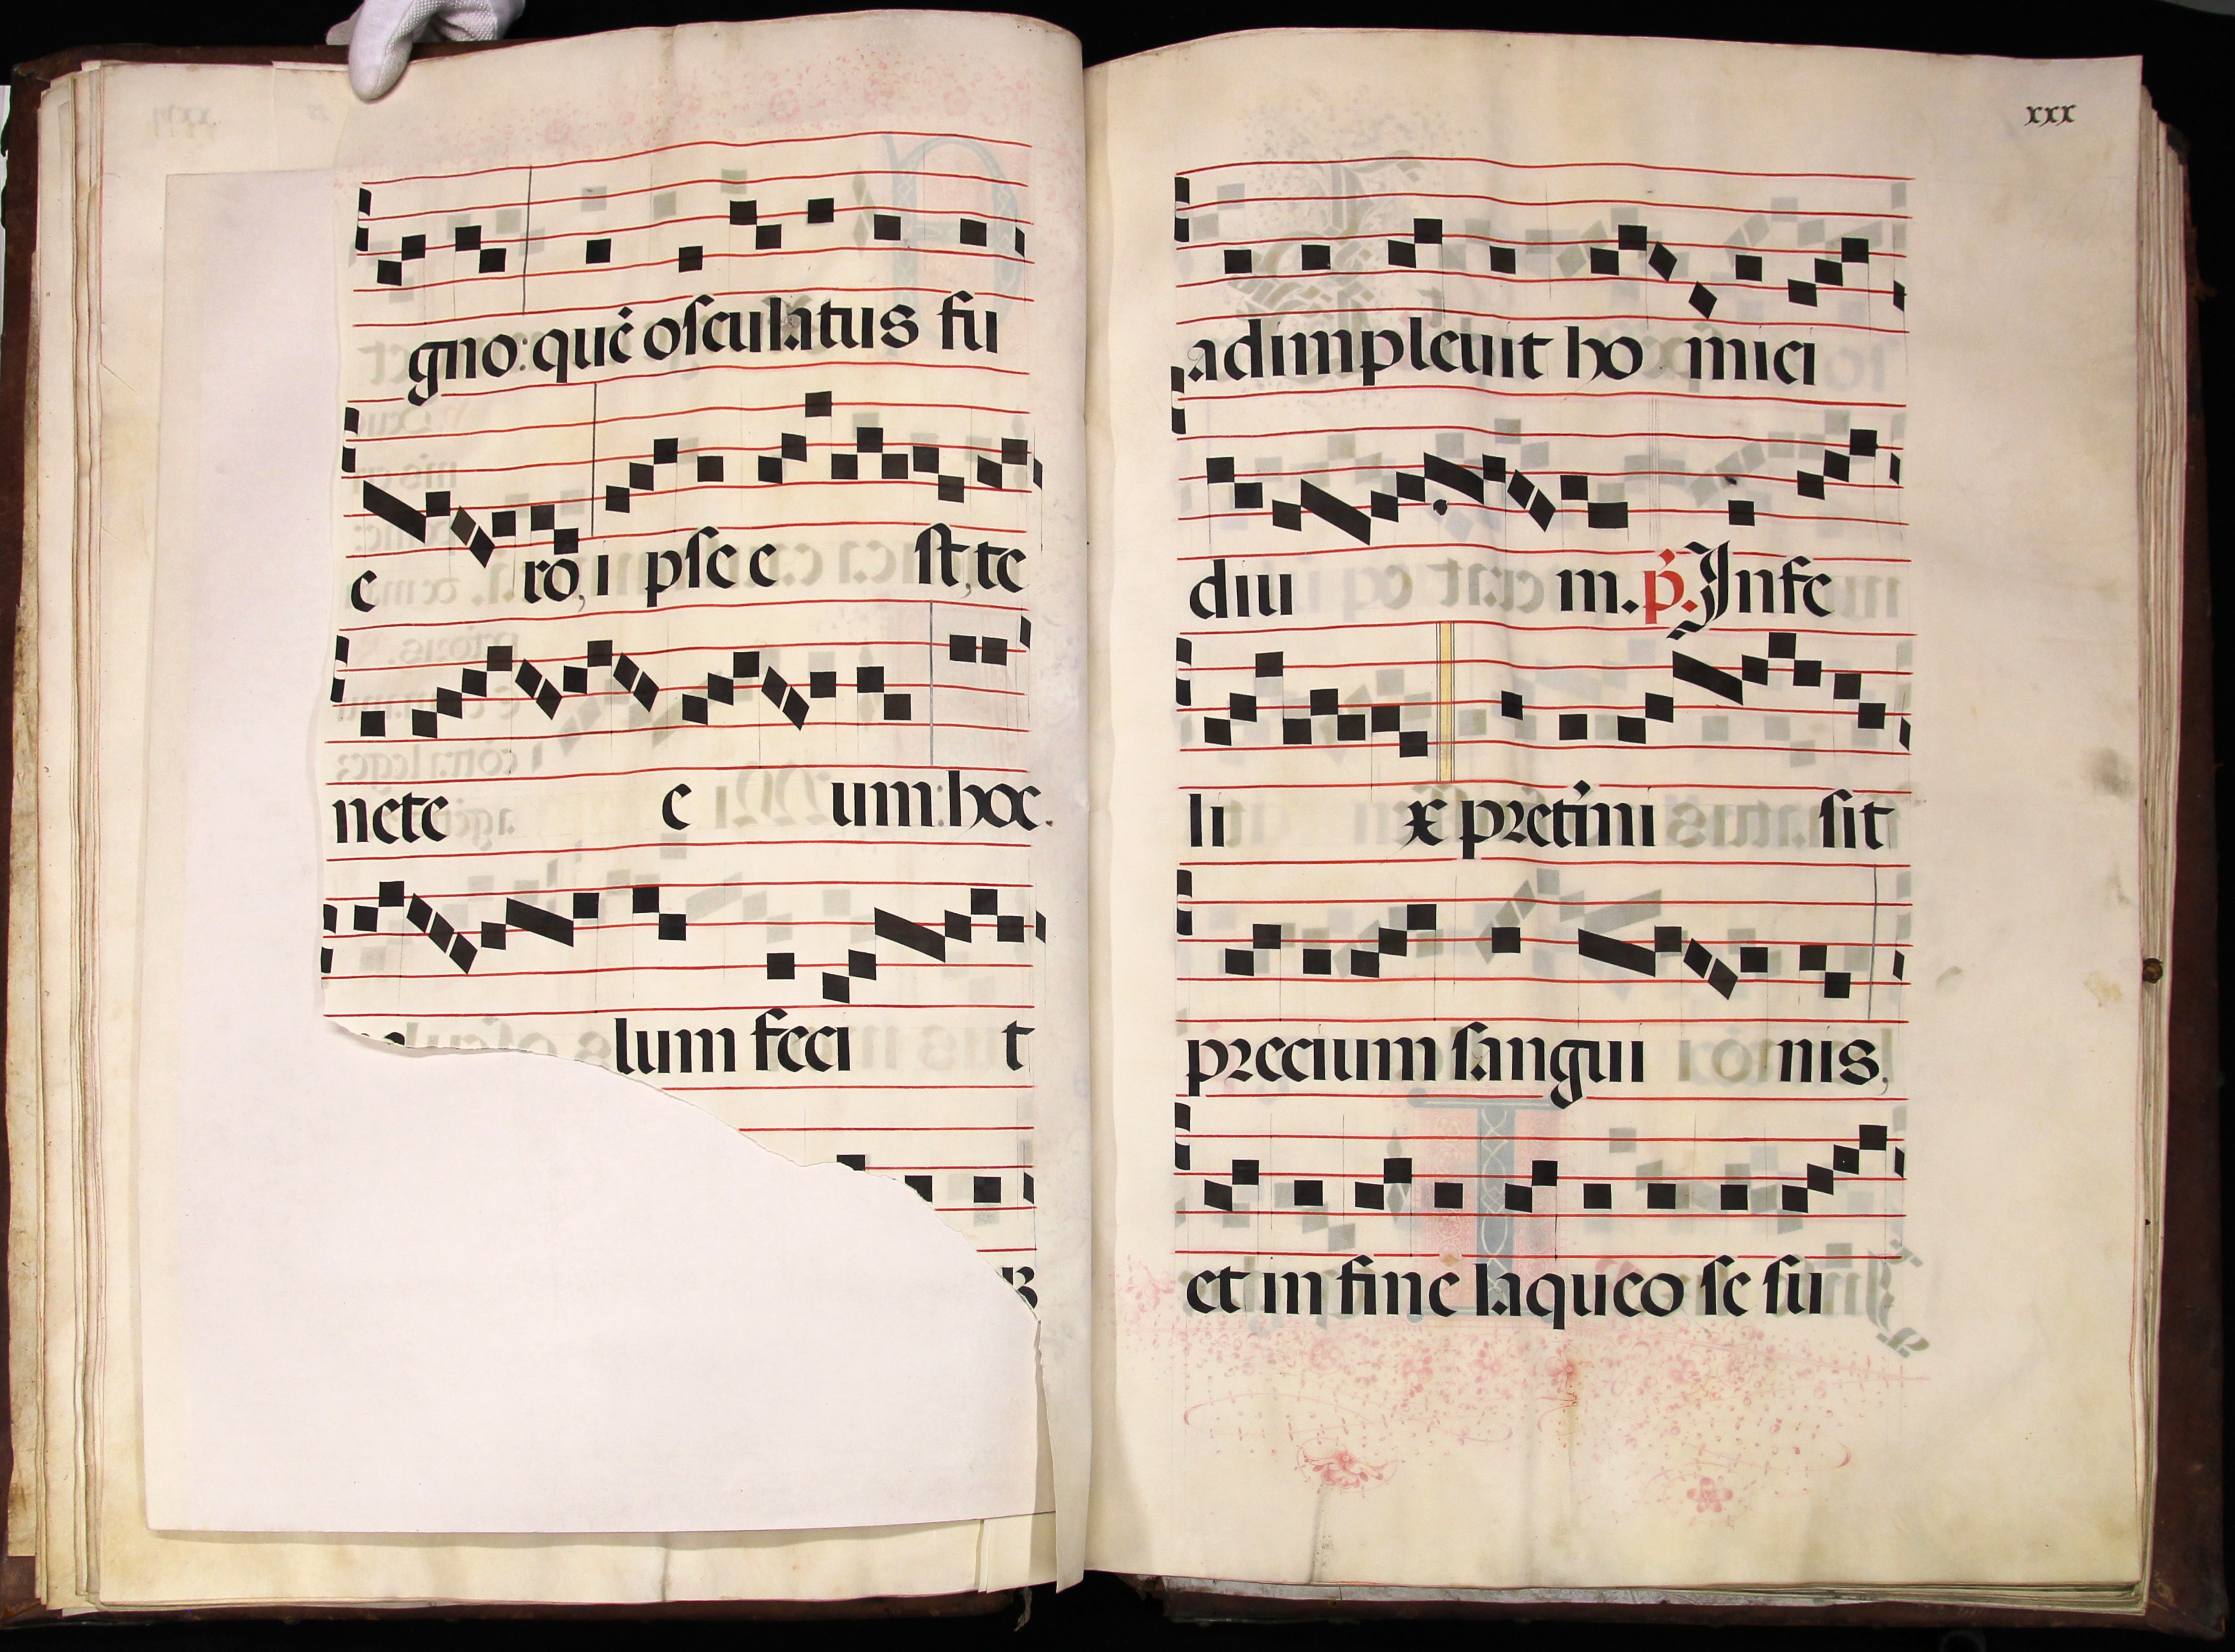 gno: quē osculatus fu
e ro, i pse e st, te
nete e um: hoc
lum feci t
xxx
adimpleuit ho mici
diu m. p̄. Infe
li x pretmi sit
precium sangui nis,
et in fine laqueo se su